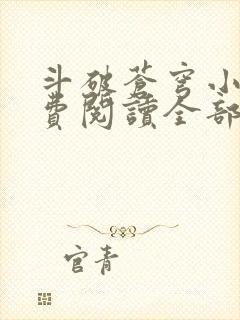 斗破蒼穹小
費閱讀全部
官青